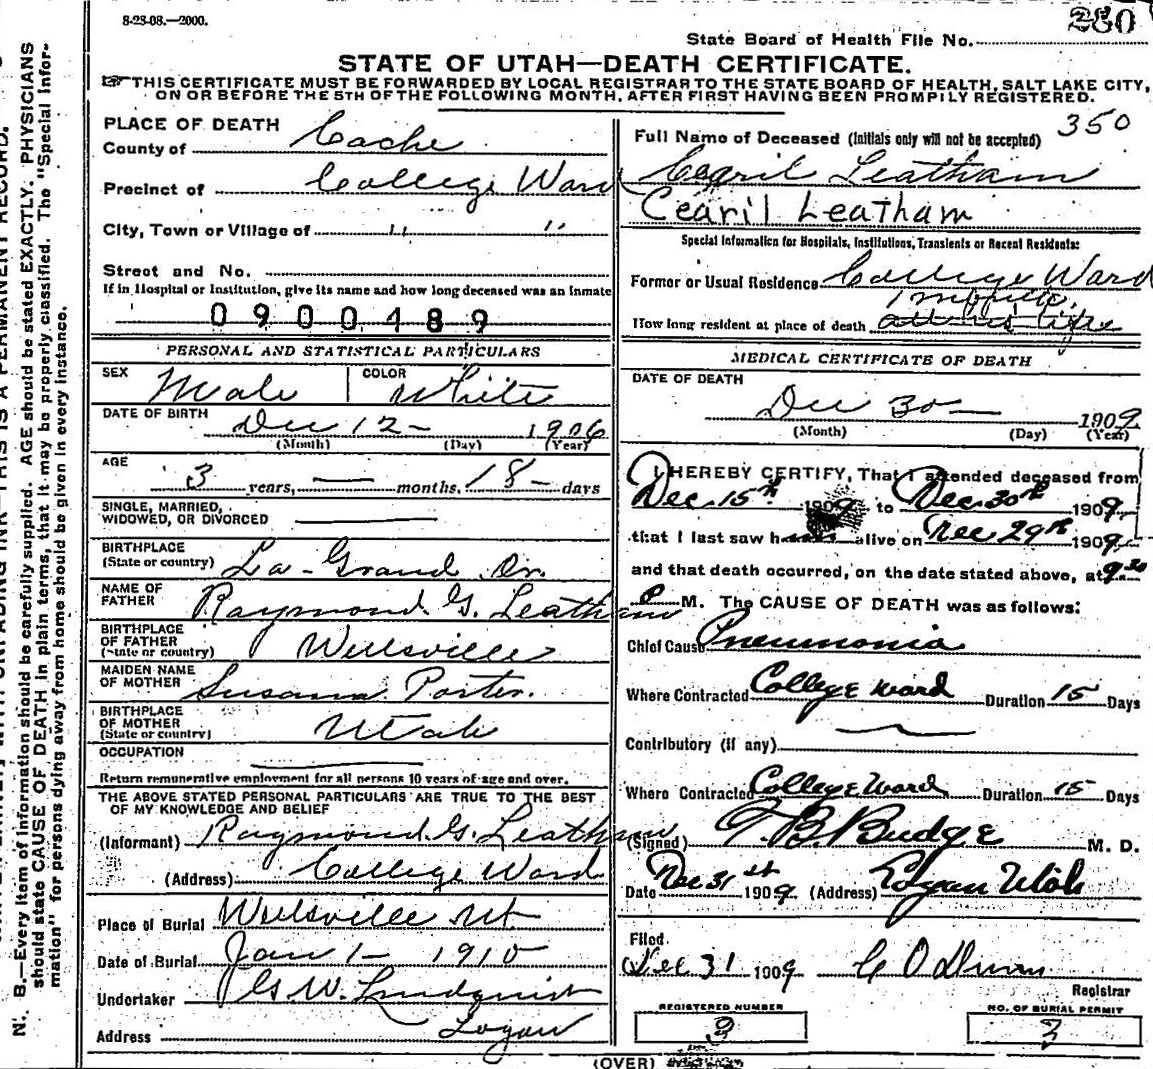 8-23-08.—2000.
280
State Board of Health File No.
STATE OF UTAH—DEATH CERTIFICATE.
THIS CERTIFICATE MUST BE FORWARDED BY LOCAL REGISTRAR TO THE STATE BOARD OF HEALTH, SALT LAKE CITY,
ON OR BEFORE THE 5TH OF THE FOLLOWING MONTH, AFTER FIRST HAVING BEEN PROMPTLY REGISTERED.
PLACE OF DEATH
County of Cache
Precinct of College Ward
City, Town or Village of " "
Street and No.
If in Hospital or Institution, give its name and how long deceased was an inmate
0900489
PERSONAL AND STATISTICAL PARTICULARS
SEX Male COLOR White
DATE OF BIRTH
Dec 12 - 1906
(Month) (Day) (Year)
AGE
3 years, — months, 18 - days
SINGLE, MARRIED,
WIDOWED, OR DIVORCED
BIRTHPLACE
(State or country) La-Grand Or.
NAME OF
FATHER Raymond G. Leatham
BIRTHPLACE
OF FATHER
(State or country) Wellsville
MAIDEN NAME
OF MOTHER Susana Porter.
BIRTHPLACE
OF MOTHER
(State or country) Utah
OCCUPATION
Return remunerative employment for all persons 10 years of age and over.
THE ABOVE STATED PERSONAL PARTICULARS ARE TRUE TO THE BEST
OF MY KNOWLEDGE AND BELIEF
(Informant) Raymond G. Leatham
(Address) College Ward
Place of Burial Wellsville Ut
Date of Burial Jan 1 - 1910
Undertaker G W. Lundquist
Address Logan
350
Full Name of Deceased (Initials only will not be accepted)
Cearil Leatham
Cearil Leatham
Special Information for Hospitals, Institutions, Transients or Recent Residents:
Former or Usual Residence College Ward
How long resident at place of death all his life
MEDICAL CERTIFICATE OF DEATH
DATE OF DEATH
Dec 30 — 1909
(Month) (Day) (Year)
I HEREBY CERTIFY, That I attended deceased from
Dec 15th 1909 to Dec 30th 1909,
that I last saw h alive on Dec 29th 1909
and that death occurred, on the date stated above, at 9:30
P M. The CAUSE OF DEATH was as follows:
Chief Cause Pneumonia
Where Contracted College Ward Duration 15 Days
Contributory (if any)
Where Contracted College Ward Duration 15 Days
(Signed) T. B. Budge M. D.
Date Dec 31st 1909 (Address) Logan Utah
Filed
Dec 31 1909 C O Dunn
Registrar
REGISTERED NUMBER
3
NO. OF BURIAL PERMIT
3
(OVER)
N. B.—Every item of information should be carefully supplied. AGE should be stated EXACTLY. PHYSICIANS
should state CAUSE OF DEATH in plain terms, that it may be properly classified. The "Special Infor-
mation" for persons dying away from home should be given in every instance.
INK—THIS IS A PERMANENT RECORD.